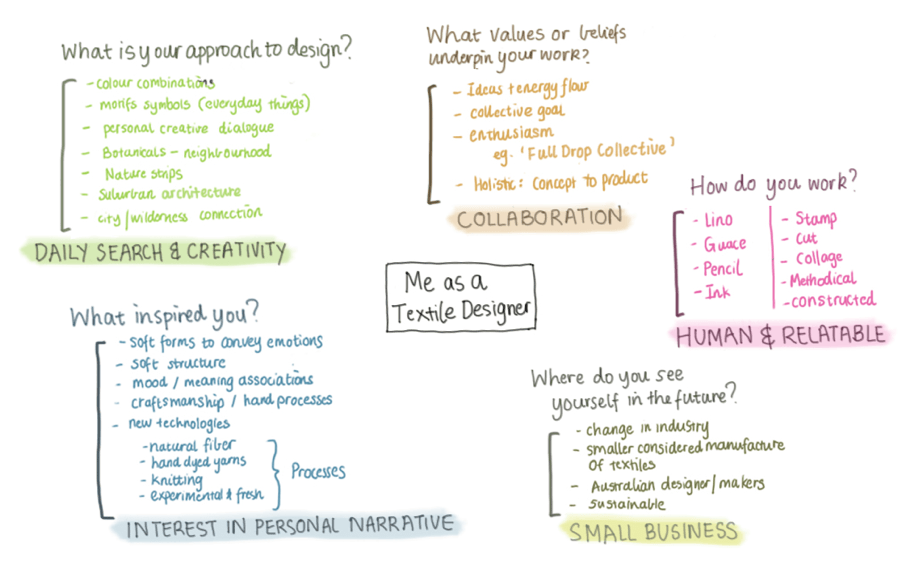 What is your approach to design?
- colour combinations
- motifs symbols (everyday things)
- personal creative dialogue
- Botanicals - neighbourhood
- Nature strips
- Suburban architecture
- city/wilderness connection
DAILY SEARCH & CREATIVITY
What values or beliefs
underpin your work?
- Ideas + energy flow
- collective goal
- enthusiasm
eg. 'Full Drop Collective'
- Holistic: Concept to product
COLLABORATION
How do you work?
- Lino
- Guace
- Pencil
- Ink
- Stamp
- Cut
- Collage
- Methodical
- constructed
HUMAN & RELATABLE
Me as a
Textile Designer
What inspired you?
- soft forms to convey emotions
- soft structure
- mood / meaning associations
- craftsmanship / hand processes
- new technologies
- natural fiber
- hand dyed yarns
- knitting
- experimental & fresh
Processes
INTEREST IN PERSONAL NARRATIVE
Where do you see
yourself in the future?
- change in industry
- smaller considered manufacture
of textiles
- Australian designer/makers
- sustainable
SMALL BUSINESS